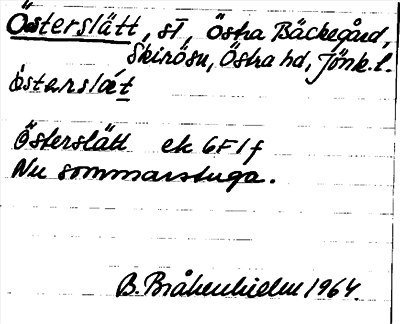 Österslätt, sT, Östra Bäckegård,
Skirösn, Östra hd, Jönk.l.
österslǽt
Österslätt ek 6F1f
Nu sommarstuga.
B. Bråkenhielm 1964